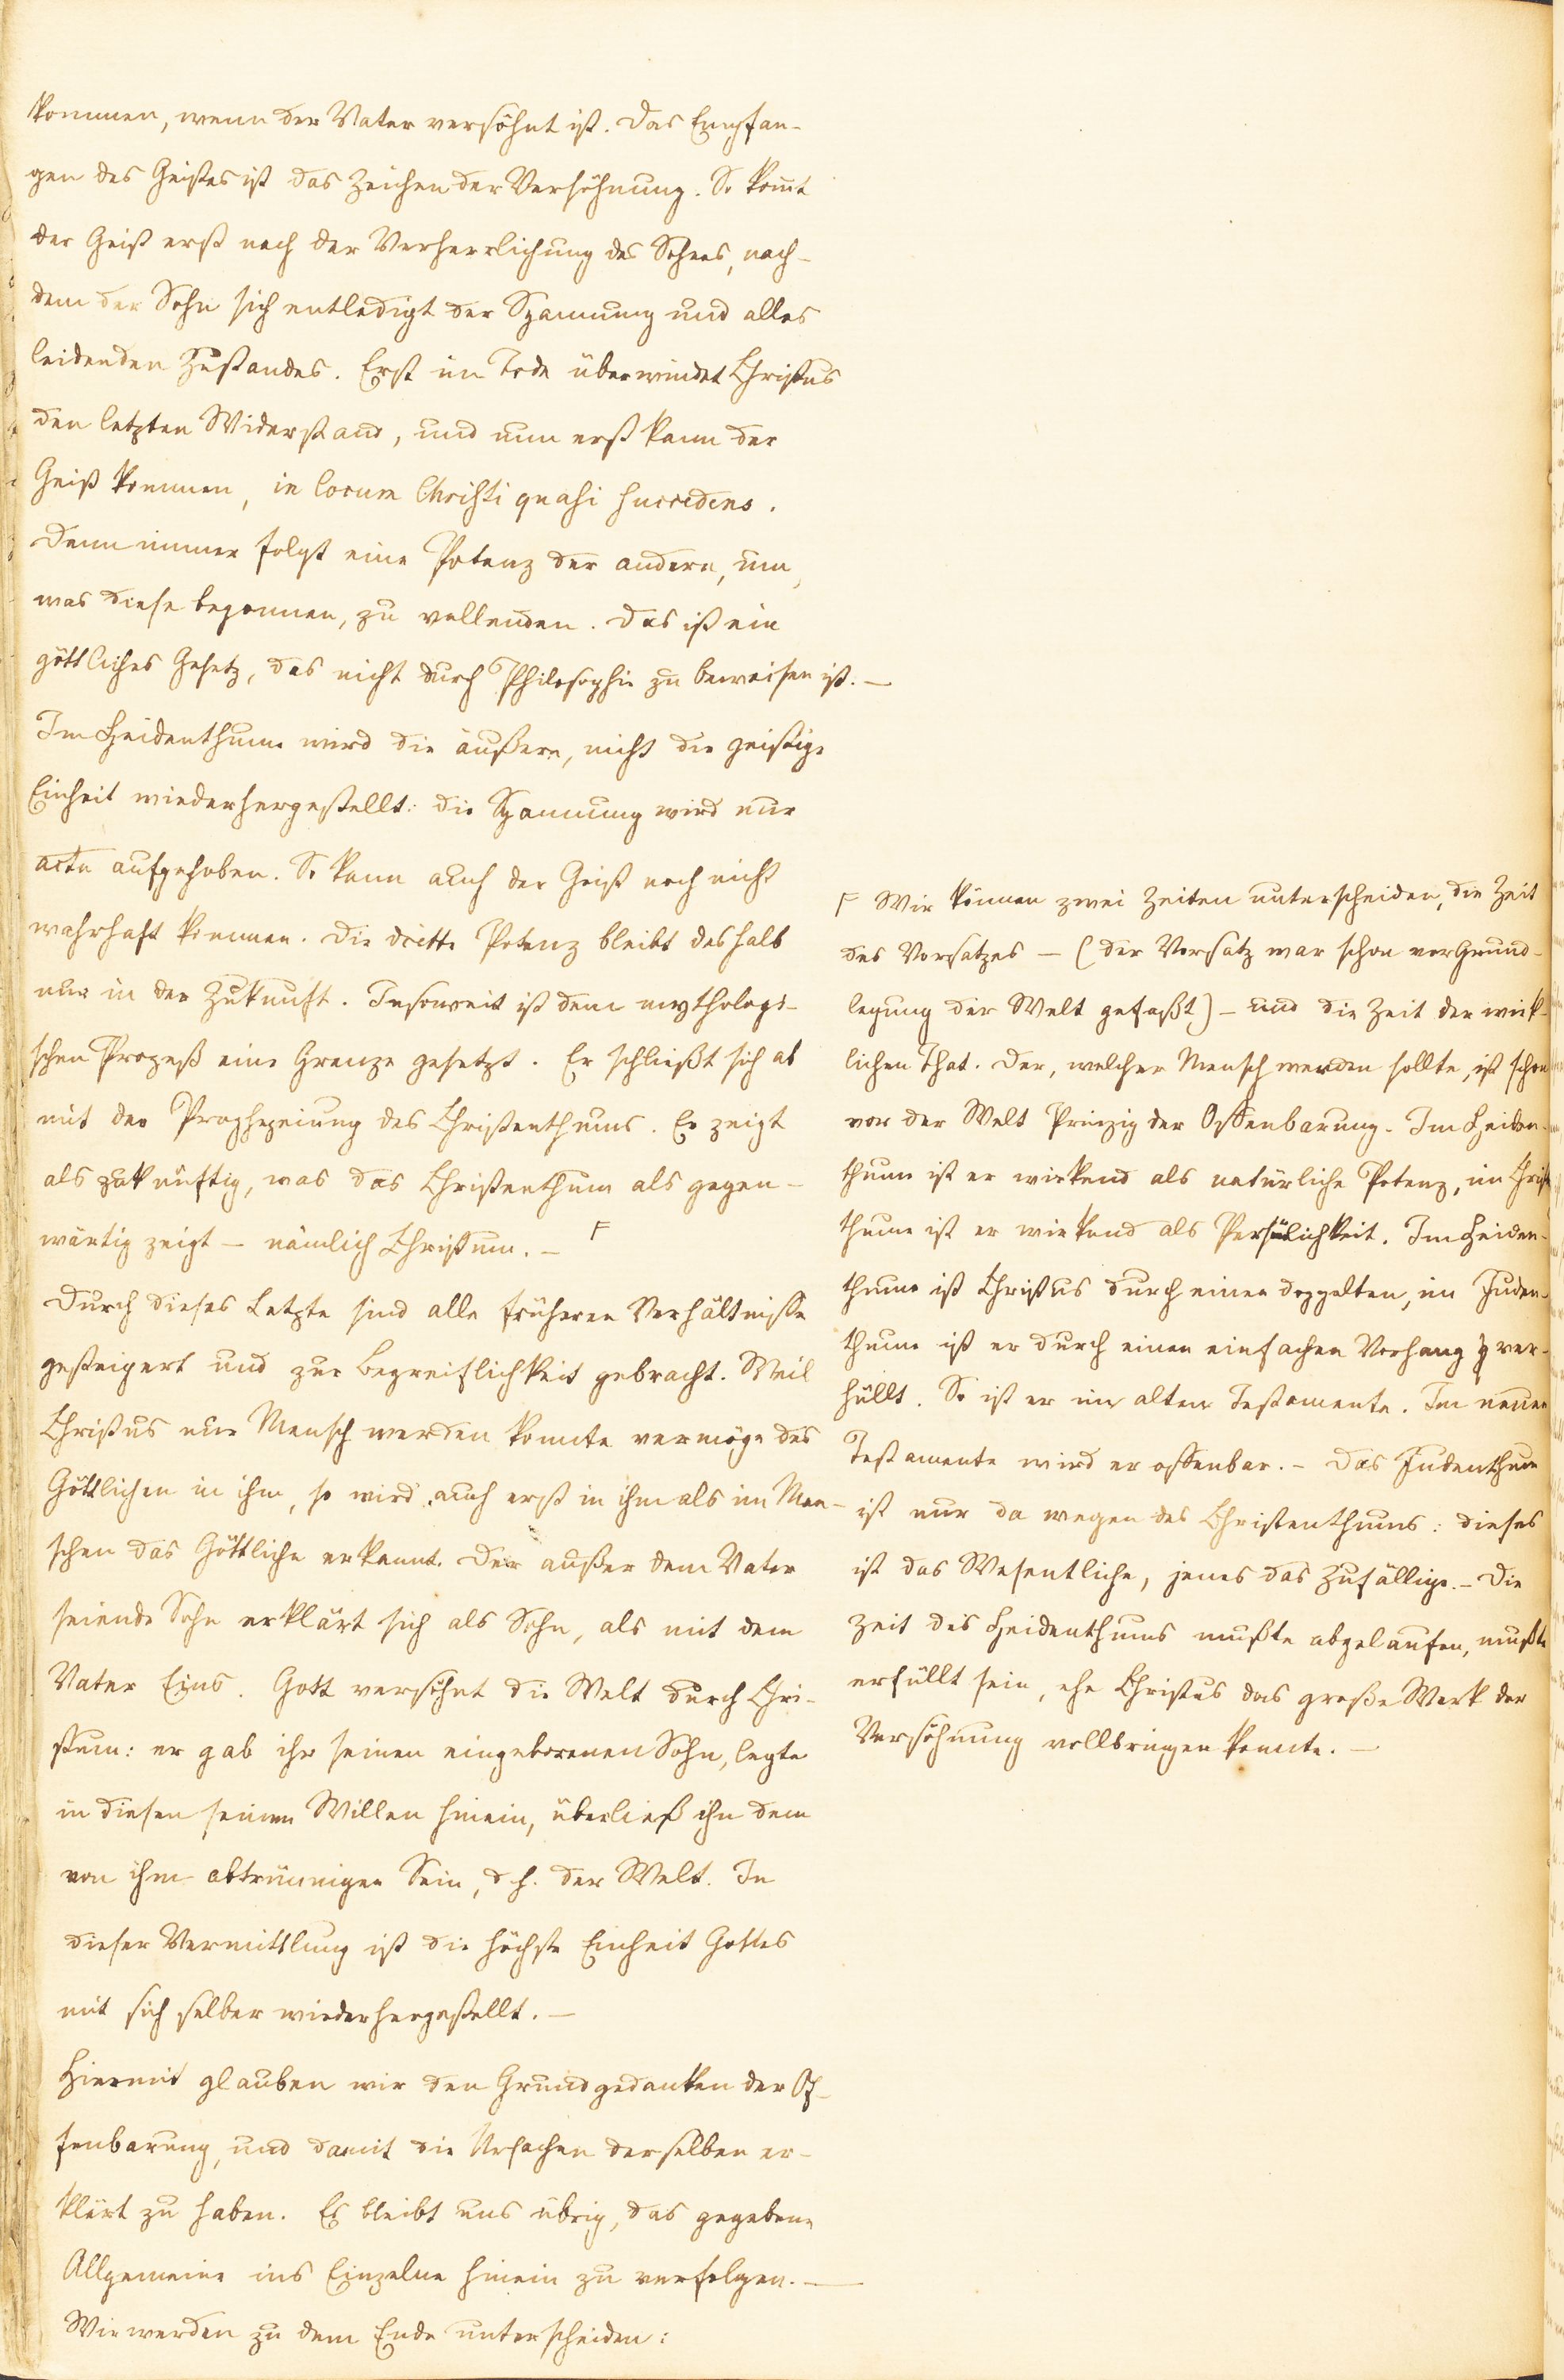 kommen, wenn der Vater versöhnt ist. Das Empfan-
gen des Geistes ist das Zeichen der Versöhnung. So kom̄t
der Geist erst nach der Verherrlichung des Sohnes, nach-
dem der Sohn sich entledigt der Spannung und alles
leidenden Zustandes. Erst im Tode überwindet Christus
den letzten Widerstand, und nun erst kann der
Geist kommen, in locum Christi quasi succedens.
Denn immer folgt eine Potenz der andern, um,
was diese begonnen, zu vollenden. Das ist ein
göttliches Gesetz, das nicht durch Philosophie zu beweisen ist. —
Im Heidenthume wird die äußere, nicht die geistige
Einheit wiederhergestellt: die Spannung wird nur
actu aufgehoben. So kann auch der Geist noch nicht
wahrhaft kommen. Die dritte Potenz bleibt deshalb
nur in der Zukunft. Insoweit ist dem mythologi-
schen Prozeß eine Grenze gesetzt. Er schließt sich ab
mit der Prophezeiung des Christenthums. Er zeigt
als zukünftig, was das Christenthum als gegen-
wärtig zeigt – nämlich Christum. – F
Durch dieses Letzte sind alle früheren Verhältnisse
gesteigert und zur Begreiflichkeit gebracht. Weil
Christus nur Mensch werden konnte vermöge des
Göttlichen in ihm, so wird auch erst in ihm als im Men-
schen das Göttliche erkannt. Der außer dem Vater
seiende Sohn erklärt sich als Sohn, als mit dem
Vater Eins. Gott versöhnt die Welt durch Chri-
stum: er gab ihr seinen eingeborenen Sohn, legte
in diesen seinen Willen hinein, überließ ihn dem
von ihm abtrünnigen Sein, d. h. der Welt. In
dieser Vermittlung ist die höchste Einheit Gottes
mit sich selber wiederhergestellt. —
Hiermit glauben wir den Grundgedanken der Of-
fenbarung, und damit die Ursachen derselben er-
klärt zu haben. Es bleibt uns übrig, das gegebene
Allgemeine ins Einzelne hinein zu verfolgen. —
Wir werden zu dem Ende unterscheiden:
F Wir können zwei Zeiten unterscheiden, die Zeit
des Vorsatzes – (der Vorsatz war schon vor Grund-
legung der Welt gefaßt) – und die Zeit der wirk-
lichen That. Der, welcher Mensch werden sollte, ist schon
vor der Welt Prinzip der Offenbarung. Im Heiden-
thum ist er wirkend als natürliche Potenz, im Christ
thume ist er wirkend als Persönlichkeit. Im Heiden-
thume ist Christus durch einen doppelten, im Juden-
thume ist er durch einen einfachen Vorhang ver-
hüllt. So ist er im alten Testamente. Im neuen
Testamente wird er offenbar. – Das Judenthum
ist nur da wegen des Christenthums: dieses
ist das Wesentliche, jenes das Zufällige. – Die
Zeit des Heidenthums mußte abgelaufen, mußte
erfüllt sein, ehe Christus das große Werk der
Versöhnung vollbringen konnte. —